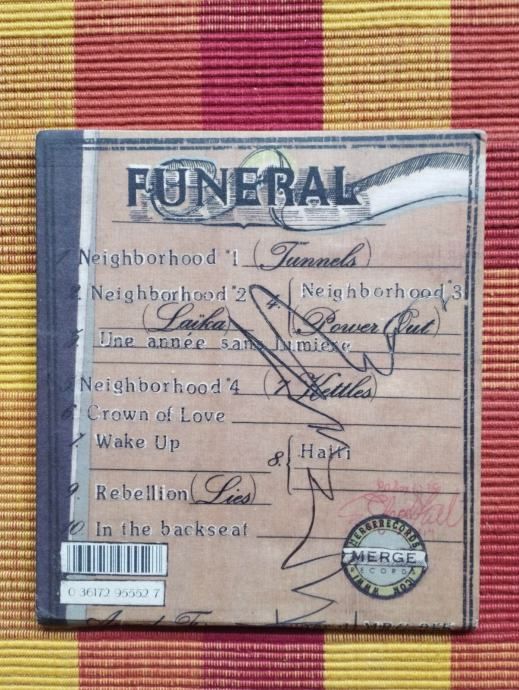 FUNERAL
1. Neighborhood #1 (Tünnels)
2. Neighborhood #2 (Laïka)
3. Une année sans lumiere
4. Neighborhood #3 (Power Out)
5. Neighborhood #4 (7 Kettles)
6. Crown of Love
7. Wake Up
8. Haïti
9. Rebellion (Lies)
10. In the backseat
MERGERECORDS
MERGE
RECORDS
0 36172 95552 7